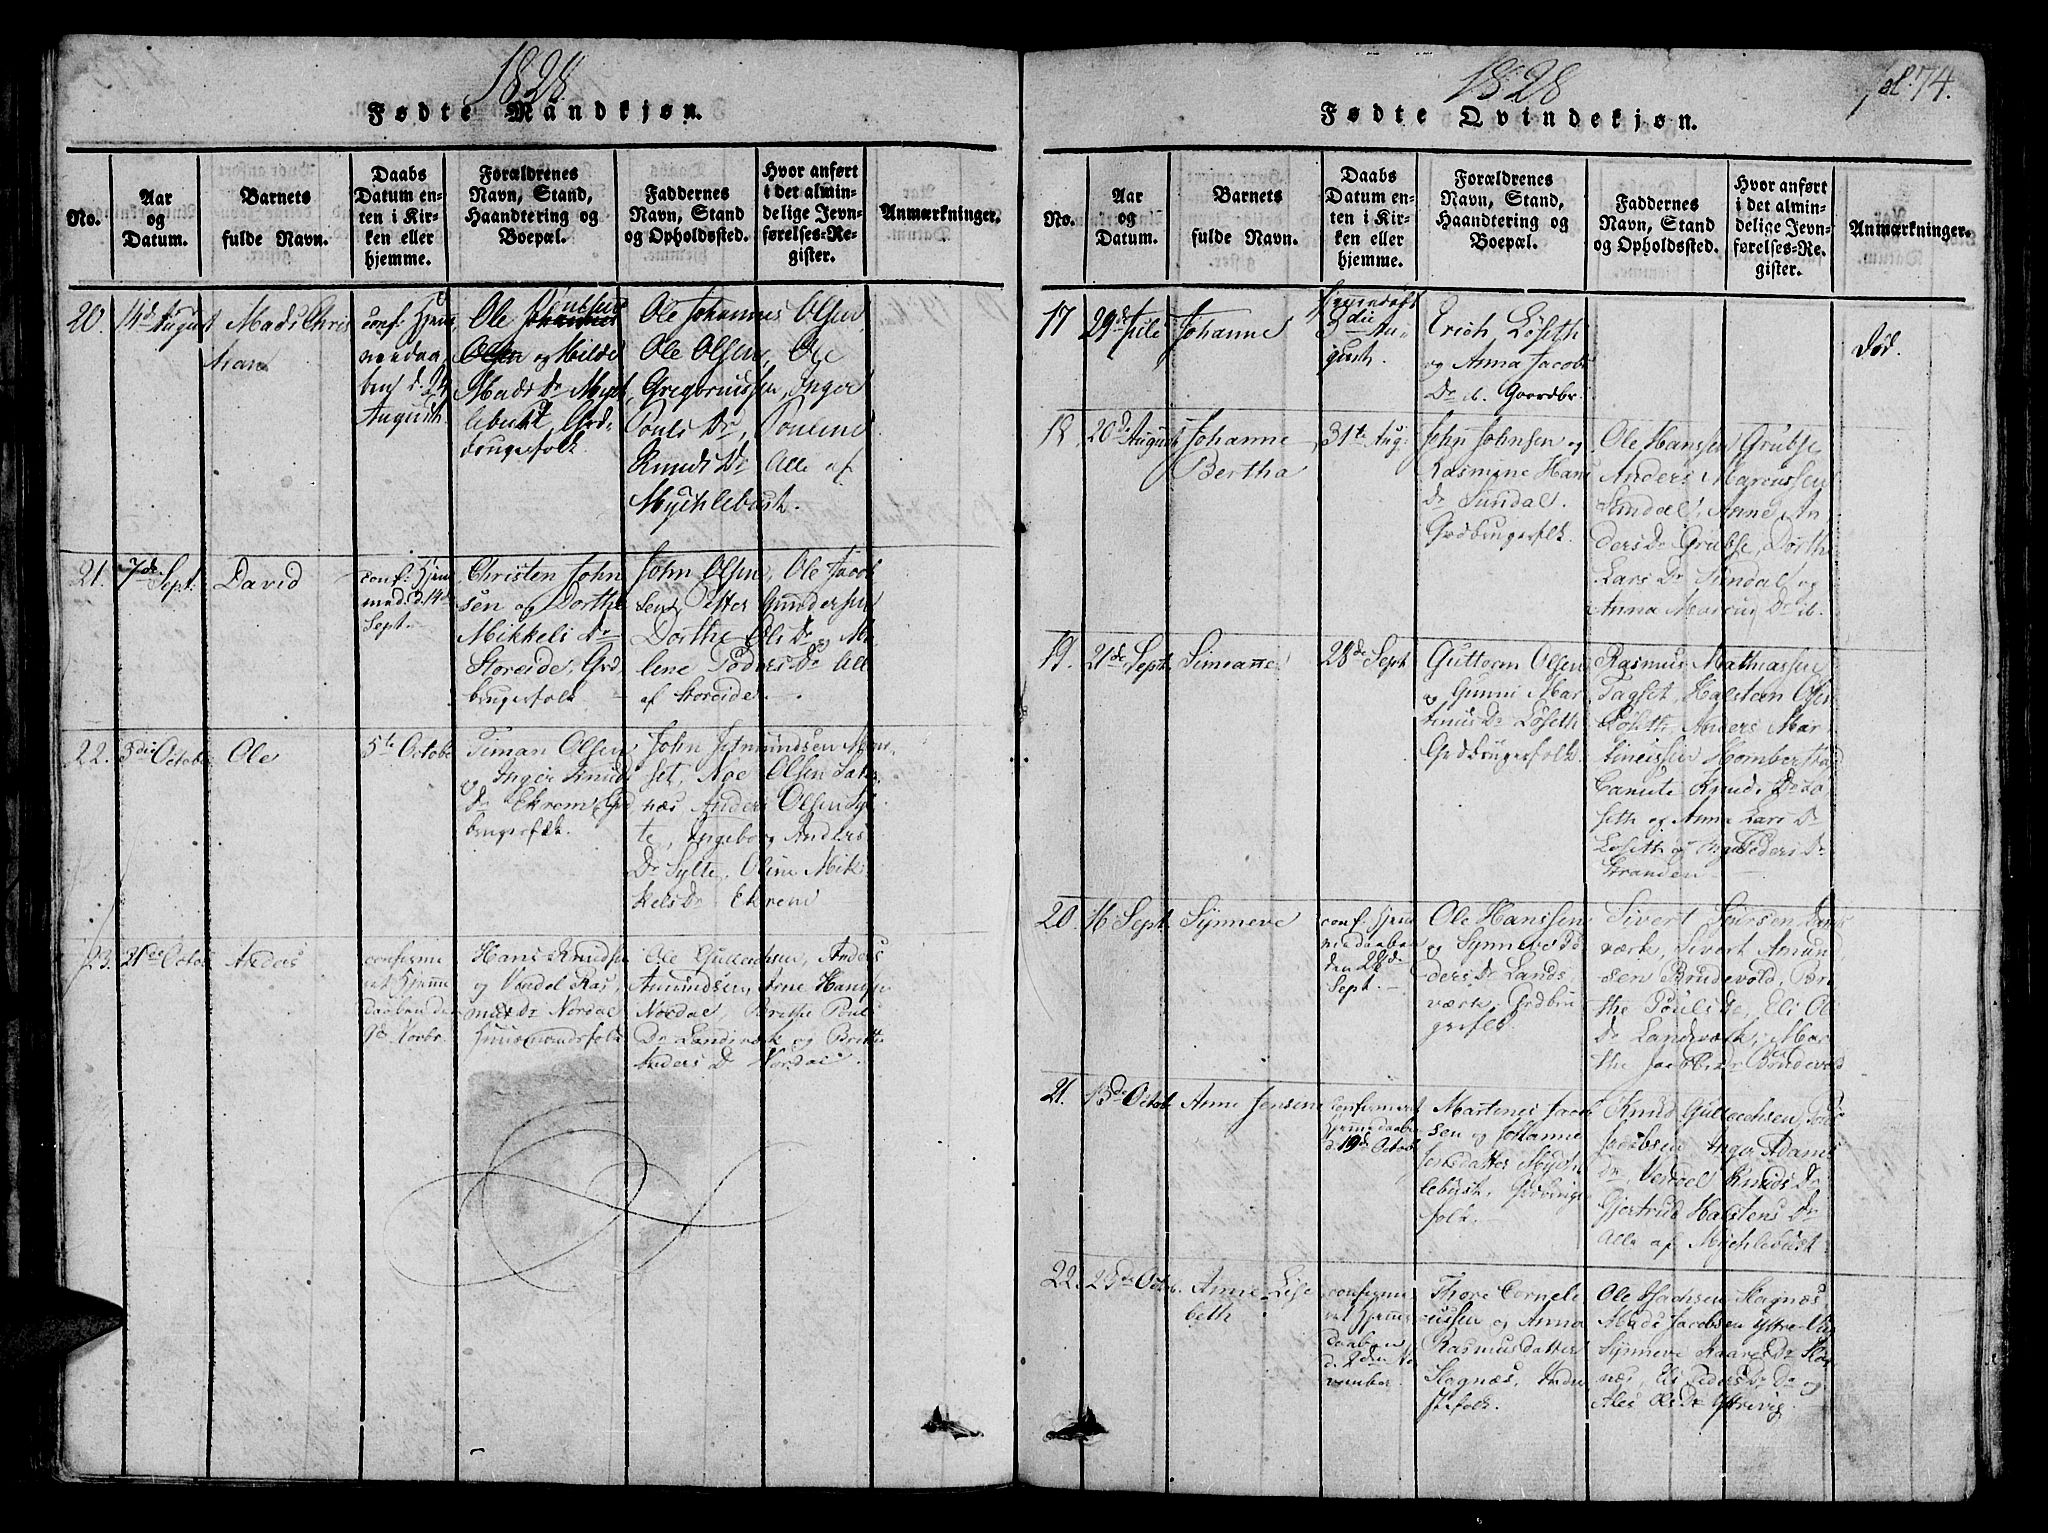 1828
Fødte Mandkjøn.
No.
Aar
og
Datum.
Barnets
fulde Navn.
Daabs
Datum en-
ten i Kir-
ken eller
hjemme.
Forældrenes
Navn, Stand,
Haandtering og
Boepæl.
Faddernes
Navn, Stand
og Opholdssted.
Hvor anført
i det almin-
delige Jevn-
førelses-Re-
gister.
Anmærkninger.
20.
14d August
Mads Chris
tian
conf. Hjem
medaa
ben d. 24
Augusti
Ole
Olsen og Milde
Mads Dr Mych
lebust, Grd
brugerfolk
Ole Johannes Olsen
Ole Olsen, Ole
Gregoriussen, Inger
Pouls Dr,
Knuds Dr Alle af
Mychlebust.
21.
7de Sept.
David
conf. Hjem
med. d. 14de
Sept.
Christen John
sen og Dorthe
Mikkels Dr
Storeide, Grd
brugerfolk
John Olsen, Ole Jacob
sen, Petter Gundersen
Dorthe Ols Dr og Ma
lene Peders Dr All
af Storeide
22.
3die Octobr
Ole
5te Octobr
Timan Olsen
og Inger Knuds
Dr Ekrem, Grd
brugerfolk.
John
set, Noe Olsen
næs, Anders Olsen Syl
te, Ingeborg Anders
Dr Sylte, Oline Mik
kels Dr Ekrem
23.
21de Octob
Anders
confirme
ret Hjemme
daaben den
9de Novbr.
Hans Knuds
og Vendel Ras
mus Dr Nordal
Huusmandsfolk
Ole Gullachsen, Anders
Amundsen, Arne Hans
Nordal, Brithe Pouls
Dr Landsværk og Brithe
Anders Dr Nordal
1828
fol. 74.
Fødte Qvindekjøn.
No.
Aar
og
Datum.
Barnets
fulde Navn.
Daabs
Datum en-
ten i Kir-
ken eller
hjemme.
Forældrenes
Navn, Stand,
Haandtering og
Boepæl.
Faddernes
Navn, Stand
og Opholdssted.
Hvor anført
i det almin-
delige Jevn-
førelses-Re-
gister.
Anmærkninger.
17
29de Juli
Johanne
3die Au
gust.
Erich Löseth
og Anna Jacobs
Dr ib. Gaardbr.
Död.
18
20de August
Johanne
Bertha
31te Aug:
John Johnsen og
Rasmine Hans
Dr Sundal.
Grdbrugerfolk.
Ole Hanssen Grubse,
Anders Marcussen
Sundal, Anne An
ders Dr Grubse, Dorthe
Lars Dr Sundal, og
Anna Marcus Dr ib.
19.
21de Sept
Simeanne
28de Sept
Guttorm Olsen
og Gunni Mar
tinus Dr Löseth
Grdbrugerfolk
Rasmus Mathiassen
Tagset, Halsteen Olsen
Löseth, Anders Mar
tinussen Homberstad
Canute Knuds Dr Lö
seth og Anna Lars Dr
Löseth og Inger Peders Dr
Stranden
20.
16 Sept.
Synneve
conf. Hjem
medaaben
den 28de
Sept.
Ole Hanssen
og Synneve Pe
ders Dr Lands
værk, Grdbru
gerfolk
Sivert Siversen Lands
værk, Sivert Amund
sen Brudevold, Bri
the Pouls Dr, Eli Ols
Dr Landsværk, Mar
the Jacobs Dr Brudevold
21.
13de Octob
Anne Jensine
confirmeret
Hjemmedaaben
d. 19de Octob
Martinus Jacob
sen og Johanne
Jensdatter Mych
lebust, Grdbruger
folk.
Knud Gullachsen,
Jacobsen Inger Adams
Dr, Vendel Knuds Dr
Gjertrud Halstens Dr
Alle af Mychlebust
22.
25de Octob.
Anne Lise
beth
confirme
ret Hjemme
daaben
d. 9den No
vember
Thore Corneli
ussen og Anna
Rasmusdatter
Skagnæs, Inder
stefolk.
Ole Isachsen Skagnæs,
Mads Jacobsen Ytre
Synneve Kaares Dr Skag
næs, Eli Peders Dr Dr og
Ales Ols Dr Yttrevig